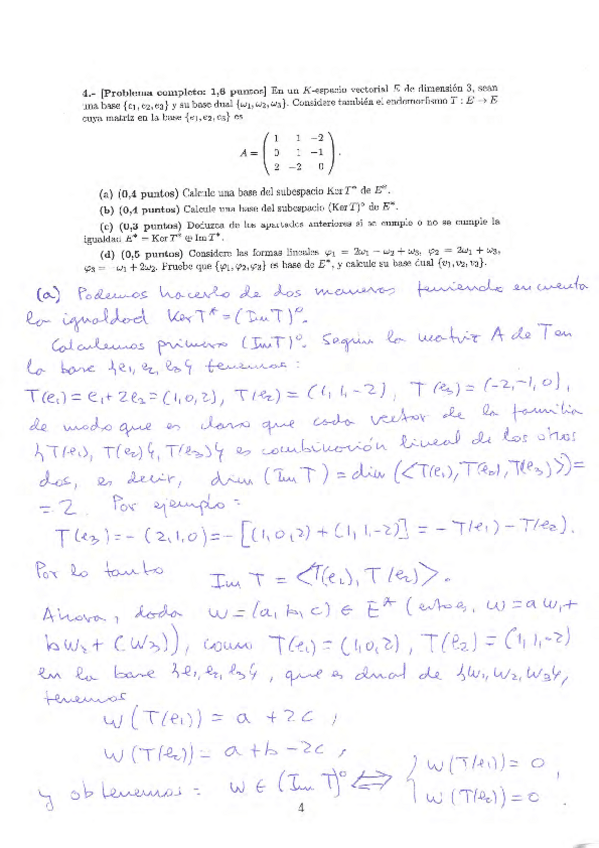 4.- [Problema completo: 1,6 puntos] En un K-espacio vectorial E de dimensión 3, sean
una base {e₁, e₂, e₃} y su base dual {ω₁, ω₂, ω₃}. Considere también el endomorfismo T : E → E
cuya matriz en la base {e₁, e₂, e₃} es
A = ( 1 1 −2
0 1 −1
2 −2 0 ) .
(a) (0,4 puntos) Calcule una base del subespacio Ker T* de E*.
(b) (0,4 puntos) Calcule una base del subespacio (Ker T)° de E*.
(c) (0,3 puntos) Deduzca de los apartados anteriores si se cumple o no se cumple la
igualdad E* = Ker T* ⊕ Im T*.
(d) (0,5 puntos) Considere las formas lineales φ₁ = 2ω₁ − ω₂ + ω₃, φ₂ = 2ω₁ + ω₃,
φ₃ = −ω₁ + 2ω₂. Pruebe que {φ₁, φ₂, φ₃} es base de E*, y calcule su base dual {v₁, v₂, v₃}.
(a) Podemos hacerlo de dos maneras teniendo en cuenta
la igualdad Ker T* = (Im T)°.
Calculemos primero (Im T)°. Según la matriz A de T en
la base {e₁, e₂, e₃} tenemos:
T(e₁) = e₁ + 2e₃ = (1,0,2), T(e₂) = (1,1,-2), T(e₃) = (-2,-1,0),
de modo que es claro que cada vector de la familia
{T(e₁), T(e₂), T(e₃)} es combinación lineal de los otros
dos, es decir, dim (Im T) = dim (<T(e₁), T(e₂), T(e₃)>) =
= 2. Por ejemplo:
T(e₃) = - (2,1,0) = - [(1,0,2) + (1,1,-2)] = - T(e₁) - T(e₂).
Por lo tanto Im T = <T(e₁), T(e₂)>.
Ahora, dada w = (a,b,c) ∈ E* (esto es, w = a w₁ +
b w₂ + c w₃), como T(e₁) = (1,0,2), T(e₂) = (1,1,-2)
en la base {e₁, e₂, e₃}, que es dual de {w₁, w₂, w₃},
tenemos
w(T(e₁)) = a + 2c ,
w(T(e₂)) = a + b - 2c ,
y obtenemos: w ∈ (Im T)° ⟺ { w(T(e₁)) = 0 ,
w(T(e₂)) = 0 .
4